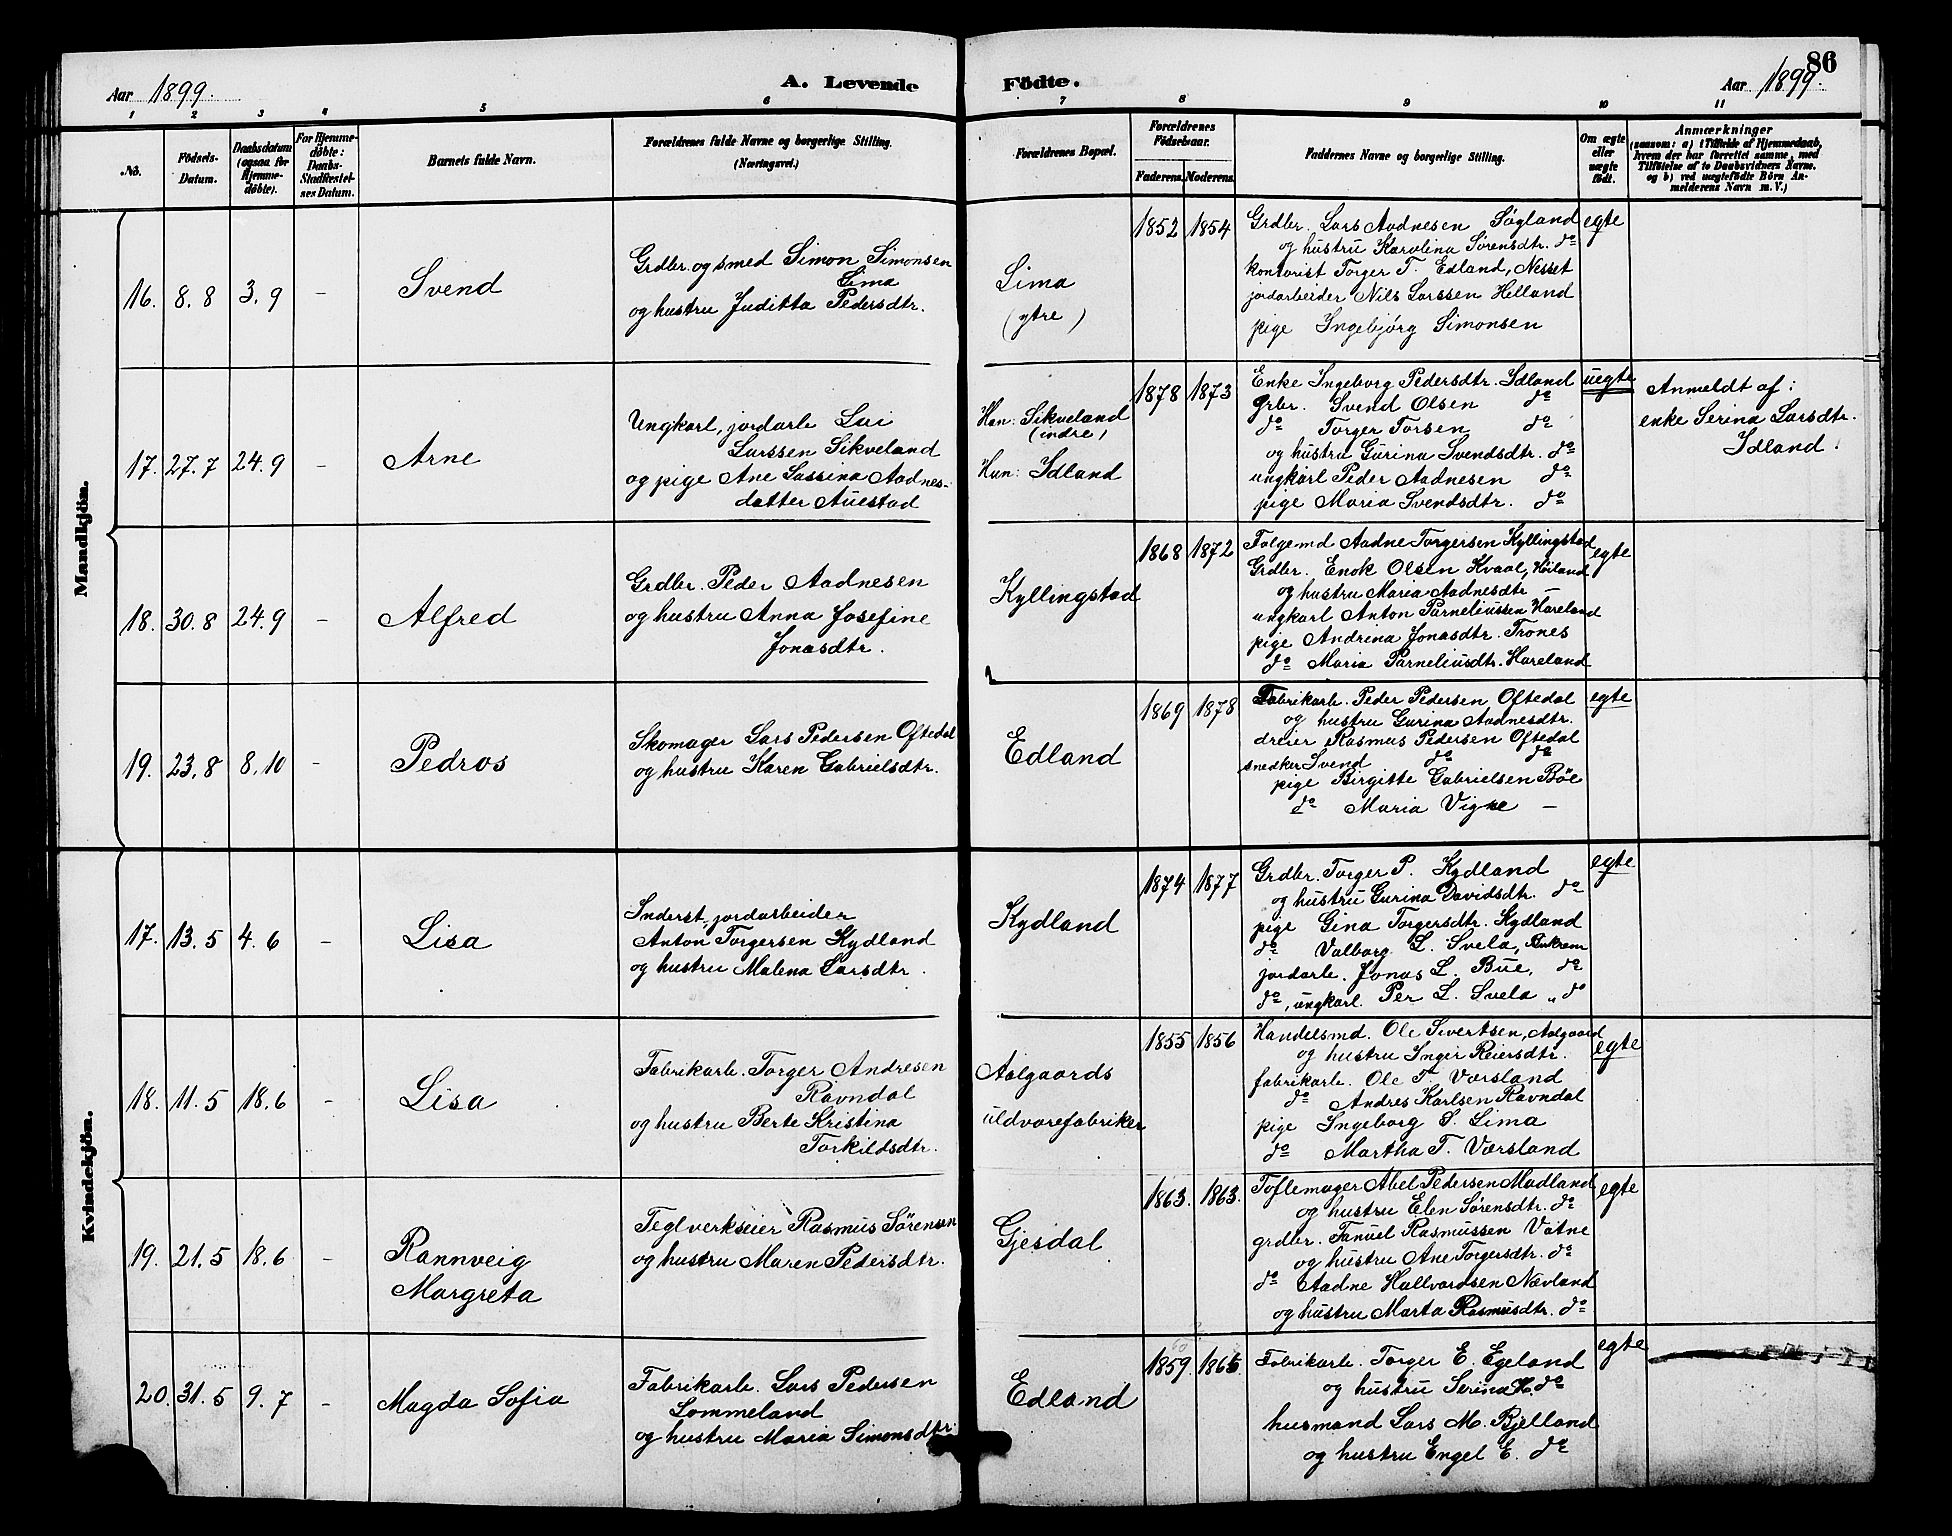 86
Aar 1899.
A. Levende
Födte.
Aar 1899.
1 2 3 4 5 6 7 8 9 10 11
No.
Födsels-
Datum.
Daabsdatum
(ogsaa for
Hjemme-
döbte).
For Hjemme-
döbte:
Daabs-
Stadfæstel-
ses Datum.
Barnets fulde Navn.
Forældrenes fulde Navne og borgerlige Stilling.
(Næringsvei.)
Forældrenes Bopæl.
Forældrenes
Födselsaar.
Faderens. Moderens.
Faddernes Navne og borgerlige Stilling.
Om ægte
eller
uægte
födt.
Anmærkninger
(saasom: a) i Tilfælde af Hjemmedaab,
hvem der har forrettet samme, med
Tilföielse af to Daabsvidners Navne,
og b) ved uægtefödte Börn An-
melderens Navn m. V.)
Mandkjön.
16. 8.8 3.9 -
Svend
Grdbr. og smed Simon Simonsen
Lima
og hustru Juditta Pedersdtr.
Lima
(ytre)
1852 1854
Grdbr. Lars Aadnesen Søyland
og hustru Karolina Sørensdtr. do
kontorist Torger T. Edland, Nesset
jordarbeider Nils Larssen Helland
pige Ingebjørg Simonsen
egte
17. 27.7 24.9 -
Arne
Ungkarl, jordarb Lui
Larssen Sikveland
og pige Ane Sassina Aadnes-
datter Auestad
Han: Sikveland
(indre)
Hun: Idland
1878 1873
Enke Ingeborg Pedersdtr. Idland
grbr. Svend Olsen do
do Torger Torsen do
og hustru Gurina Svendsdtr. do
ungkarl Peder Aadnesen do
pige Maria Svendsdtr. do
uegte
Anmeldt af:
enke Serina Larsdtr.
Idland.
18. 30.8 24.9 -
Alfred
Grdbr. Peder Aadnesen
og hustru Anna Josefine
Jonasdtr.
Kyllingstad
1868 1872
Folgemd Aadne Torgersen Kyllingstad
Grdbr. Enok Olsen Kvaal, Høiland
og hustru Maria Aadnesdtr -
ungkarl Anton Parneliussen Hareland
pige Andrina Jonasdtr. Trones
do Maria Parneliusdtr. Hareland
egte
19. 23.8 8.10 -
Pedros
Skomager Lars Pedersen Oftedal
og hustru Karen Gabrielsdtr.
Edland
1869 1878
Fabrikarb. Peder Pedersen Oftedal
og hustru Gurina Aadnesdtr.
dreier Rasmus Pedersen Oftedal
snedker Svend do do
pige Birgitte Gabrielsen Böe
do Maria Vigre -
egte
Kvindekjön.
17. 13.5 4.6 -
Lisa
Inderst, jordarbeider
Anton Torgersen Kydland
og hustru Malena Larsdtr.
Kydland
1874 1877
Grdbr. Torger P. Kydland
og hustru Gurina Davidsdtr. do
pige Gina Torgersdtr. Kydland
do Valborg L. Svela,
jordarb. Jonas L. Bue, do
do, ungkarl. Per L. Svela " do
egte
18. 11.5 18.6 -
Lisa
Fabrikarb. Torger Andresen
Ravndal
og hustru Berte Kristina
Torkildsdtr.
Aalgaards
uldvarefabriker
1855 1856
Handelsmd. Ole Sivertsen, Aalgaard
og hustru Inger Reiersdtr.
fabrikarb. Ole T. Varsland
do Andres Karlsen Ravndal
pige Ingeborg S. Lima
do Martha T. Varsland
egte
19. 21.5 18.6 -
Rannveig
Margreta
Teglverkseier Rasmus Sörensen
og hustru Maren Pedersdtr.
Gjesdal
1863. 1863.
Toflemager Abel Pedersen Madland
og hustru Elen Sørensdtr. do
grdbr. Fanuel Rasmussen Vatne
og hustru Ane Torgersdtr. do
do Aadne Hallvardsen Nævland
og hustru Marta Rasmusdtr. do
egte
20. 31.5 9.7 -
Magda Sofia
Fabrikarb. Lars Pedersen
Lommeland
og hustru Maria Simonsdtr
Edland
1859 1865
Fabrikarb. Torger E. Egeland
og hustru Serina H. do
husmand Lars M. Bjelland
og hustru Engel E. do
egte